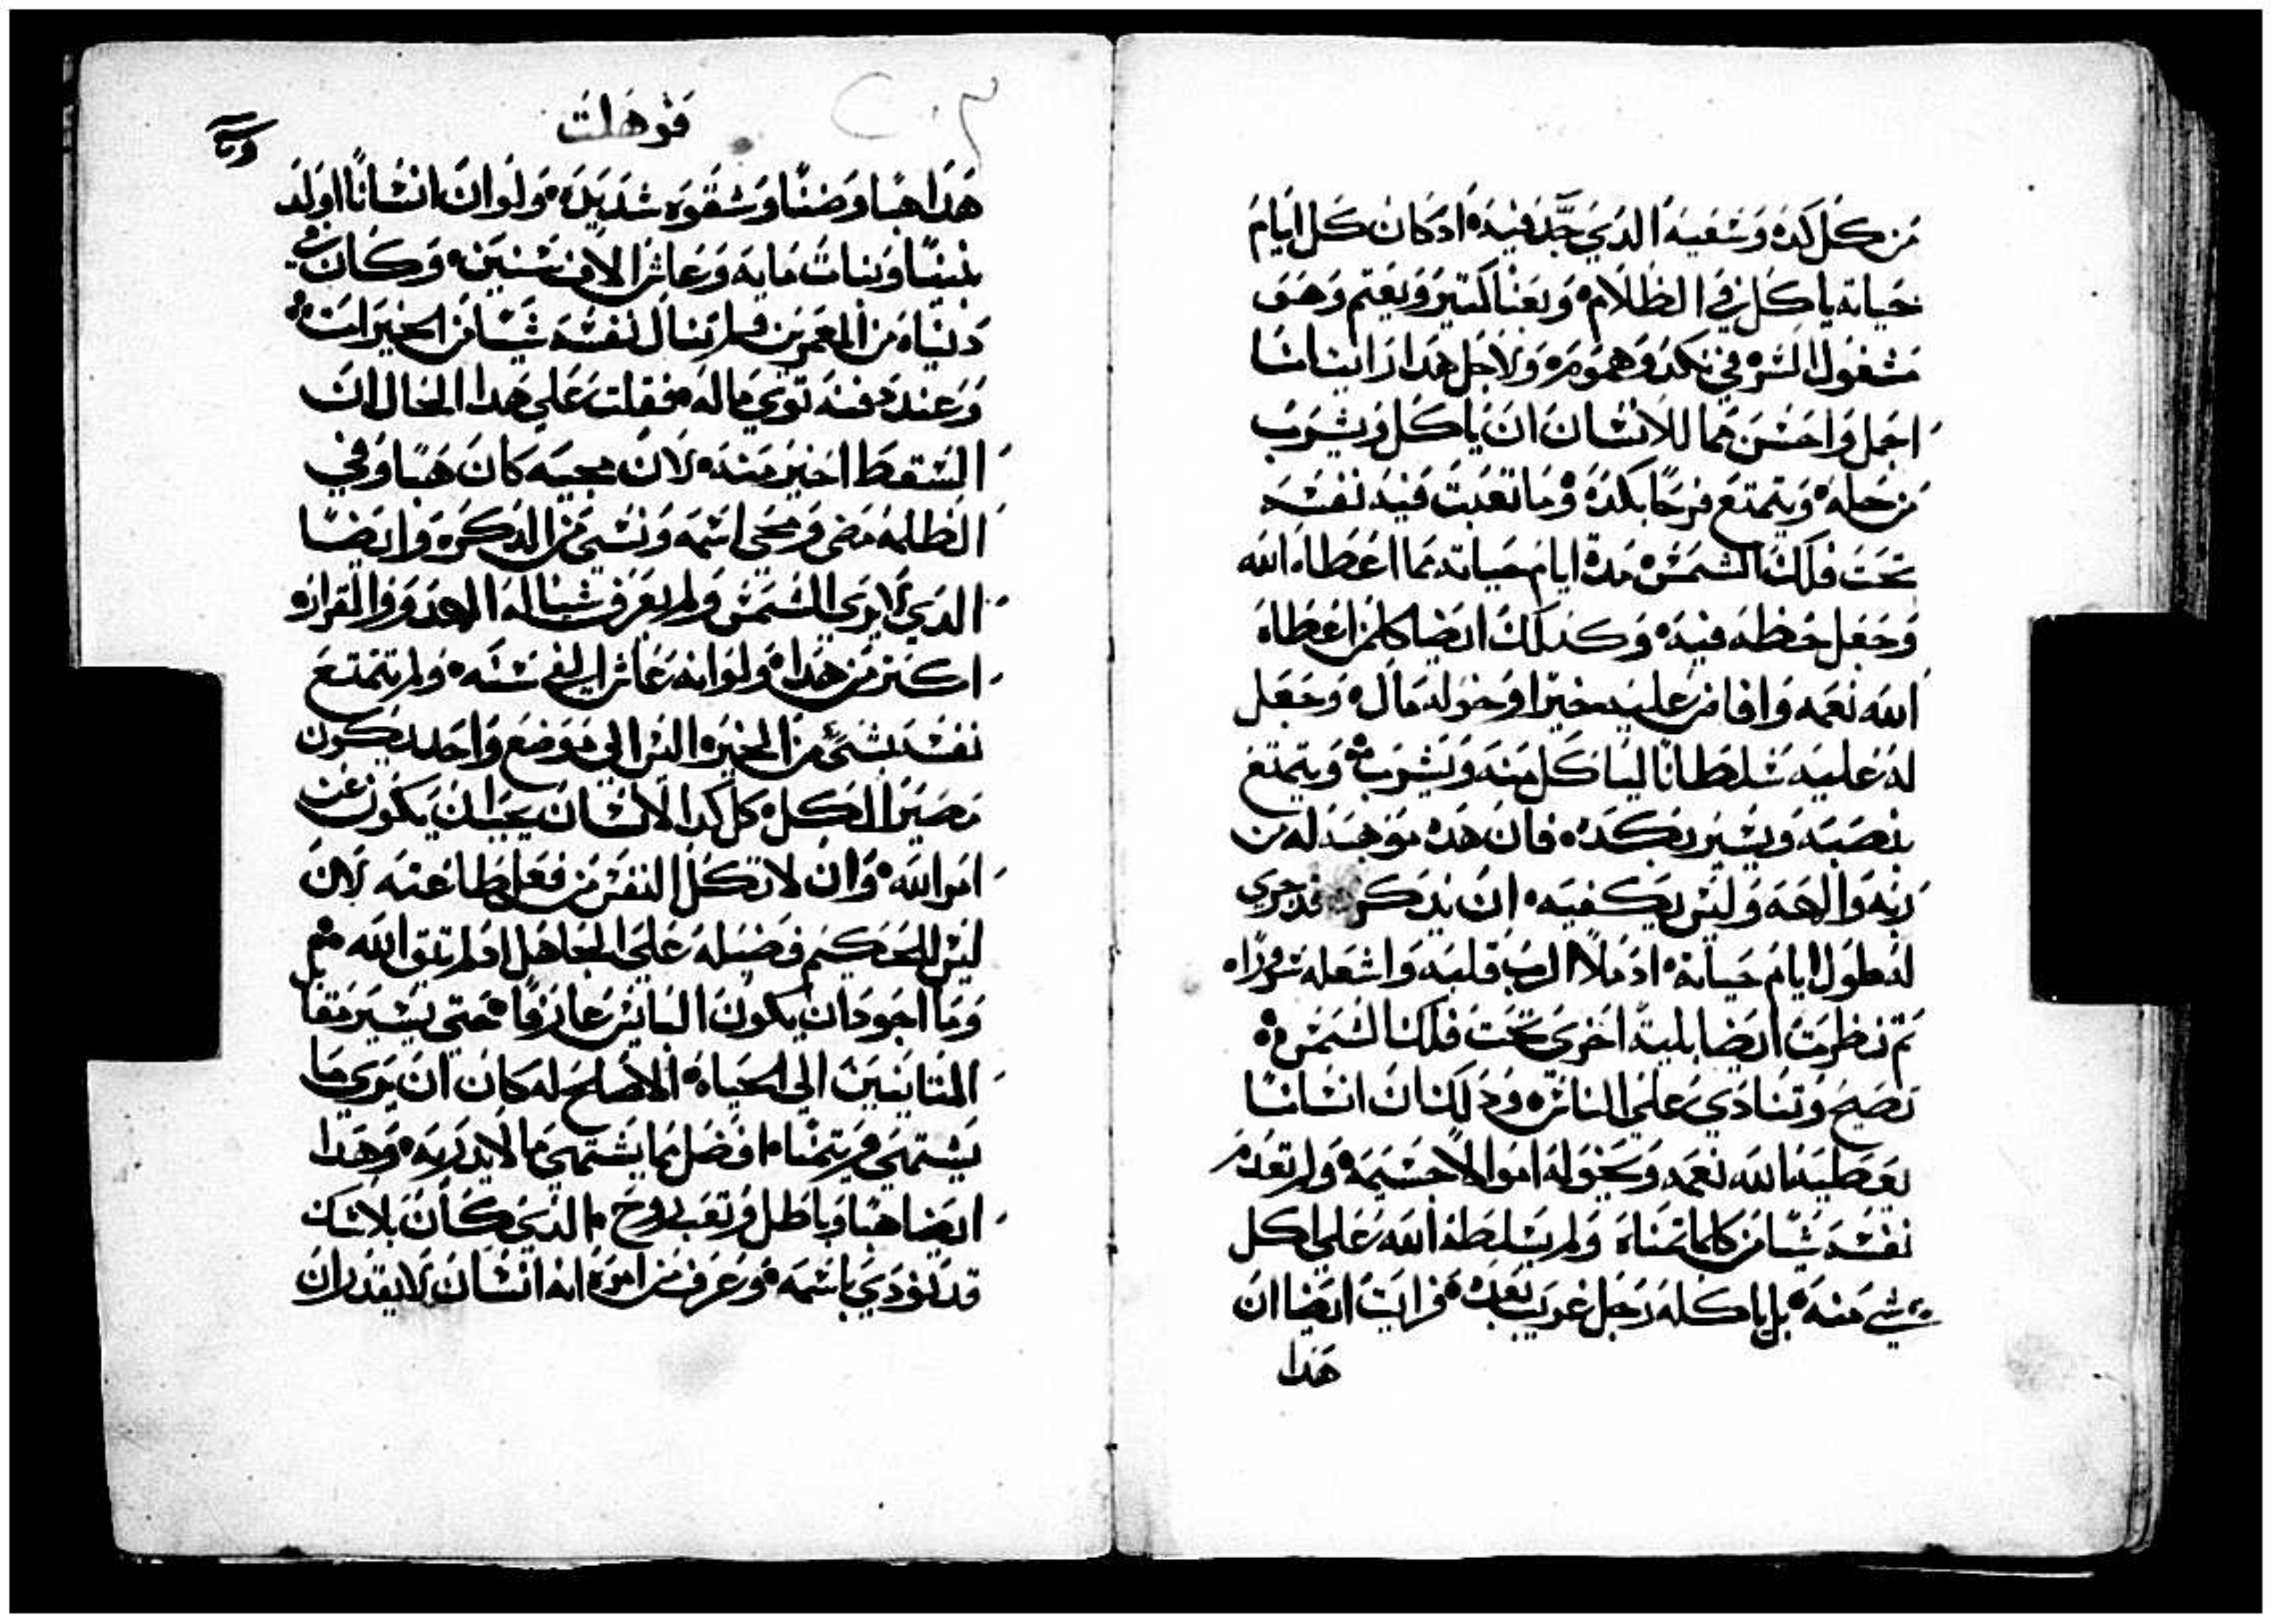 من كل كده وسعيه الدي جد فيه ادكان كل ايام
حياته ياكل في الظلام وبعنا كتير وبغم وهو
مشغول السر في نكد وهموم ولاجل هدا رايت انا
اجمل واحسن مما للانسان ان ياكل ويشرب
من حله ويتمتع فرحًا بكده وما تعبت فيه نفسه
تحت فلك الشمس مدة ايام حياته مما اعطاه الله
وجعل حظه فيه وكدلك ايضا كلمن اعطاه
الله نعمه وافاض عليه خيرا وخوله مال وجعل
له عليه سلطانا لياكل منه ويشرب ويتمتع
بنصبه ويسير بكده فان هده موهبه له من
ربه والهه وليس يكفيه ان يدكر قد جري
له طول ايام حياته اد ملا الرب قلبه واشعله سرورًا
تم نظرت ايضا بلية اخري تحت فلك الشمس
تصيح وتنادي علي الناس ودلك ان انسانًا
يعطيه الله نعمه وتخوله اموالا جسيمه ولم تعدم
نفسه شيًا من كلما تمناه ولم يسلطه الله علي اكل
شي منه بل ياكله رجل غريب بعده فرايت ايضا ان
هدا
قوهلت
هدا هبا وضنًا وشقوه شديده ولو ان انسانًا اولد
بنينًا وبنات مايه وعاش الاف سنين وكان في
دنياه من المعمرين فلم ينال نفسه شيًا من الخيرات
وعند دفنه توي ماله فقلت علي هدا الحال ان
السقط اخير منه لان مجيه كان هبًا وفي
الظلمه مضي ومحي اسمه ونسي من الدكره وايضًا
الدي لا يري الشمس ولم يعرف شيا له الهدو والقراره
اكتر من هدا ولو انه عاش الفي سنه ولم يتمتع
نفسه بشي من الخير اليس الي موضع واحد يكون
مصير الكل كل كد الانسان يجب ان يكون عن
امر الله وان لا تكل النفس من فعل طاعته لان
ليس للحكيم فضيله علي الجاهل ادلم تتق الله
وما اجود ان يكون البايس عارفًا حتي يسير مقا
المتانيين الي الحياه الاصلح له كان ان يري ما
يشتهي ويتمنا افضل مما يشتهي ما لا يدريه وهدا
ايضا هبا وباطل وتعب روح الدي كان بلا شك
قد نودي باسمه وعرف من امره انه انسان لا يقدر ان